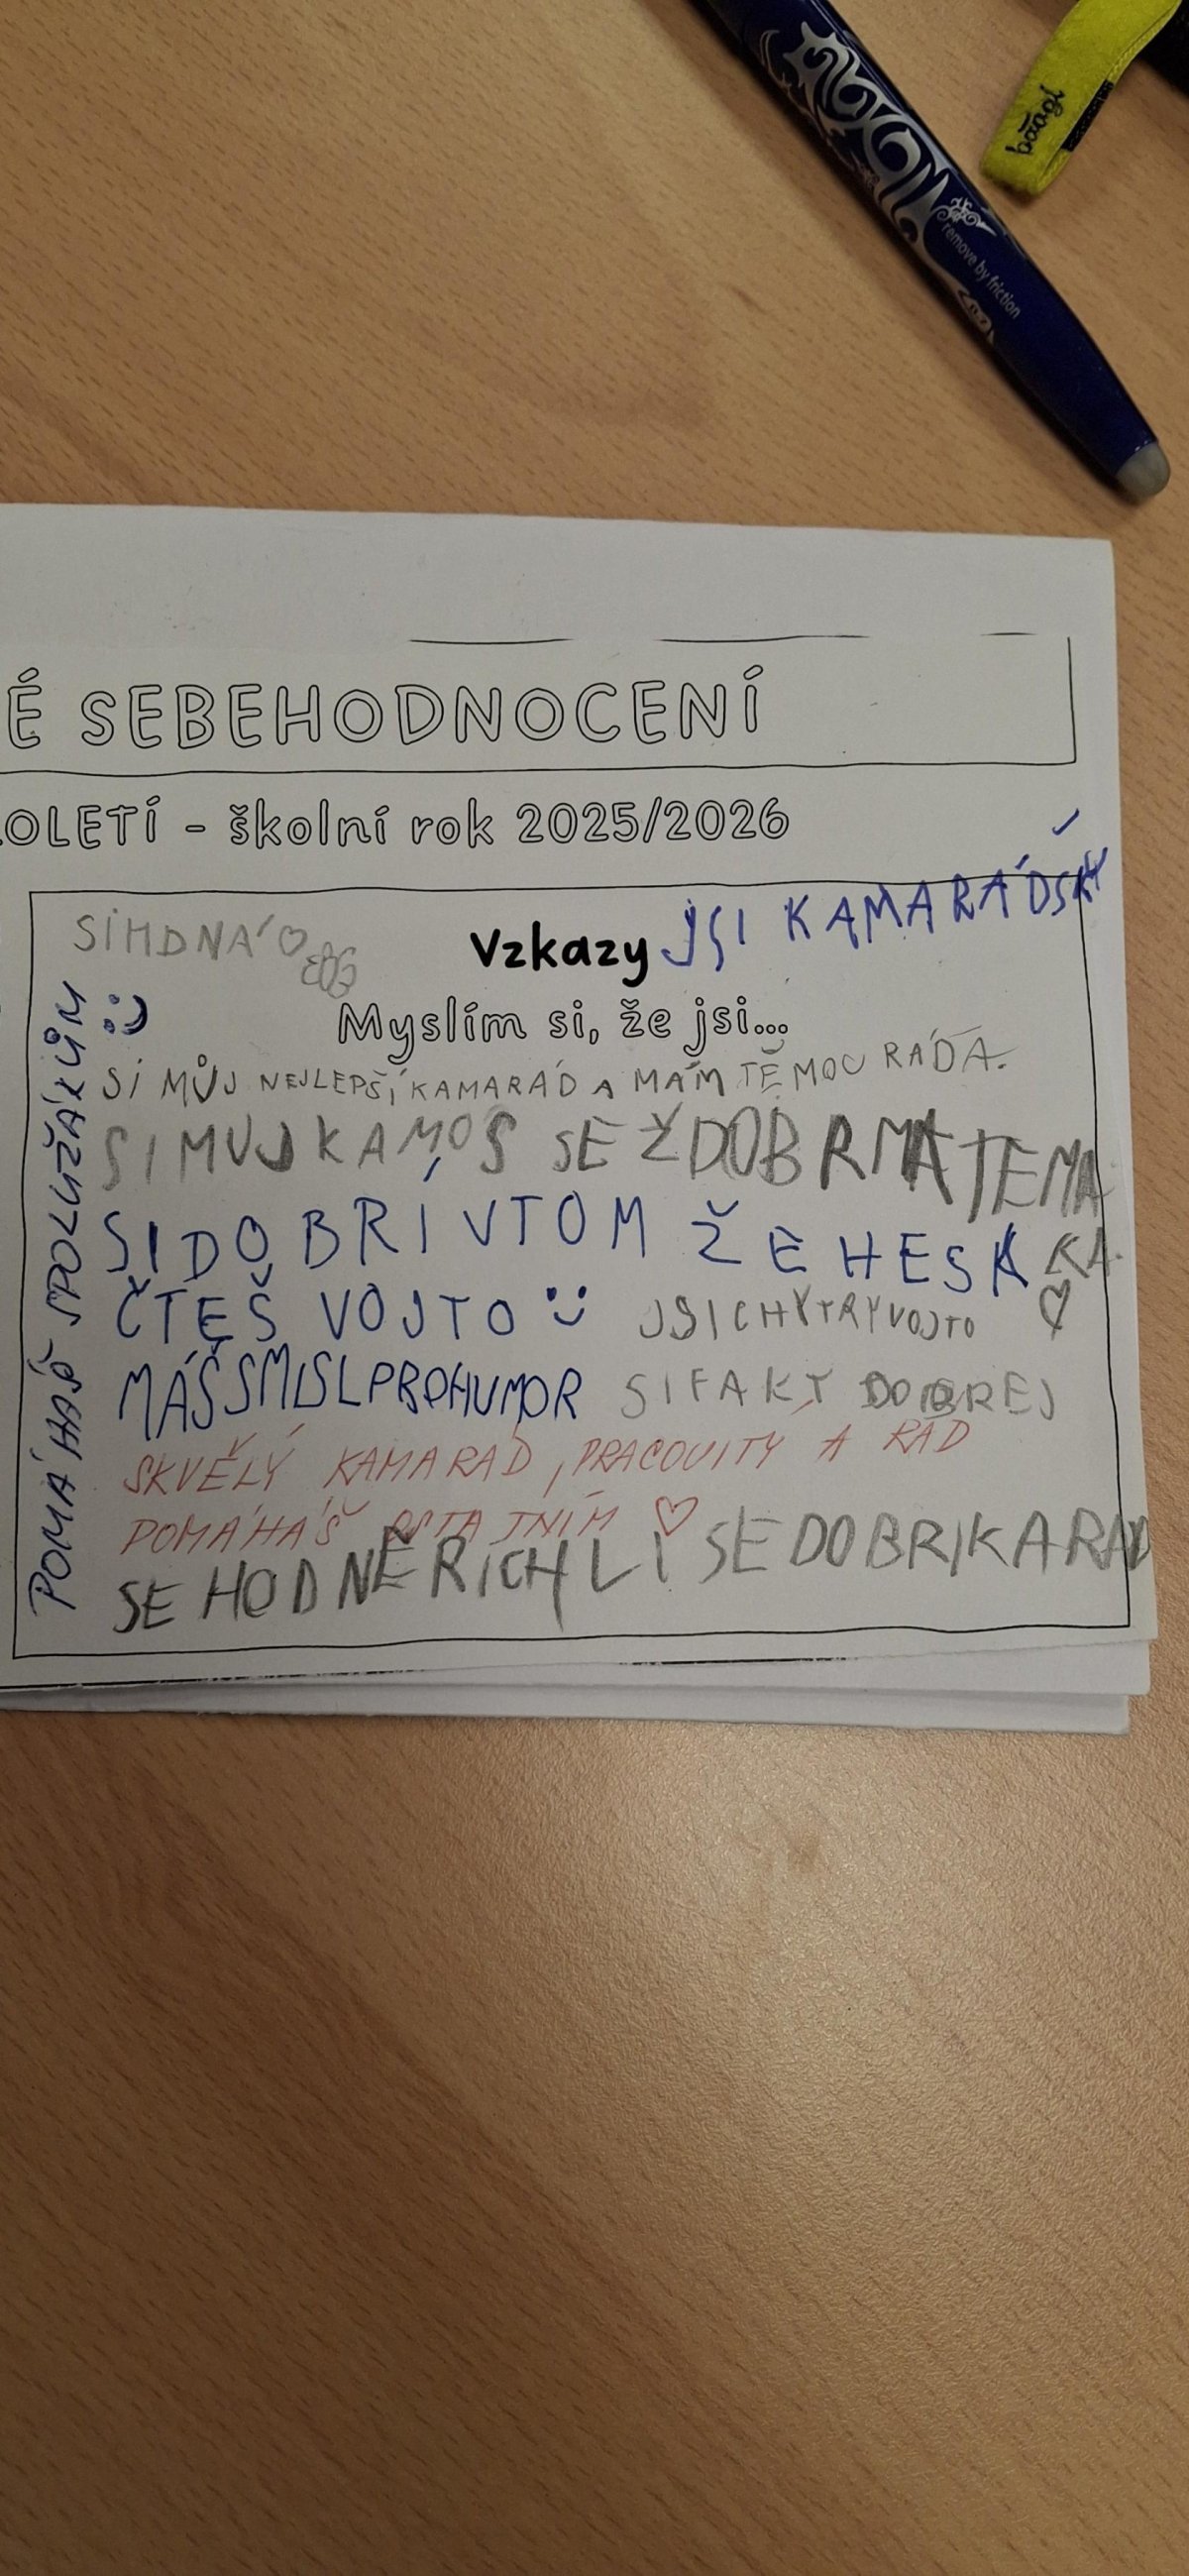 remove by friction
0.7
baagl
É SEBEHODNOCENÍ
OLETÍ - školní rok 2025/2026
SIHDNÁ
Vzkazy
JSI KAMARÁDSKÝ
Myslím si, že jsi...
POMÁHÁŠ SPOLUŽÁKŮM
SI MŮJ NEJLEPŠÍ KAMARÁD A MÁM TĚ MOC RÁDA.
SI MUJ KAMOŠ SE ŽDOBRMATEMA
KA
SI DOBRÍ VTOM ŽE HESK
ČTEŠ VOJTO JSI CHYTRÝ VOJTO
MÁŠ SMISL PROHUMOR SI FAKT DOBREJ
SKVĚLÝ KAMARÁD, PRACOVITÝ A RÁD
POMÁHÁŠ OSTATNÍM
SE HODNĚ RICHLI SE DOBRI KARAD